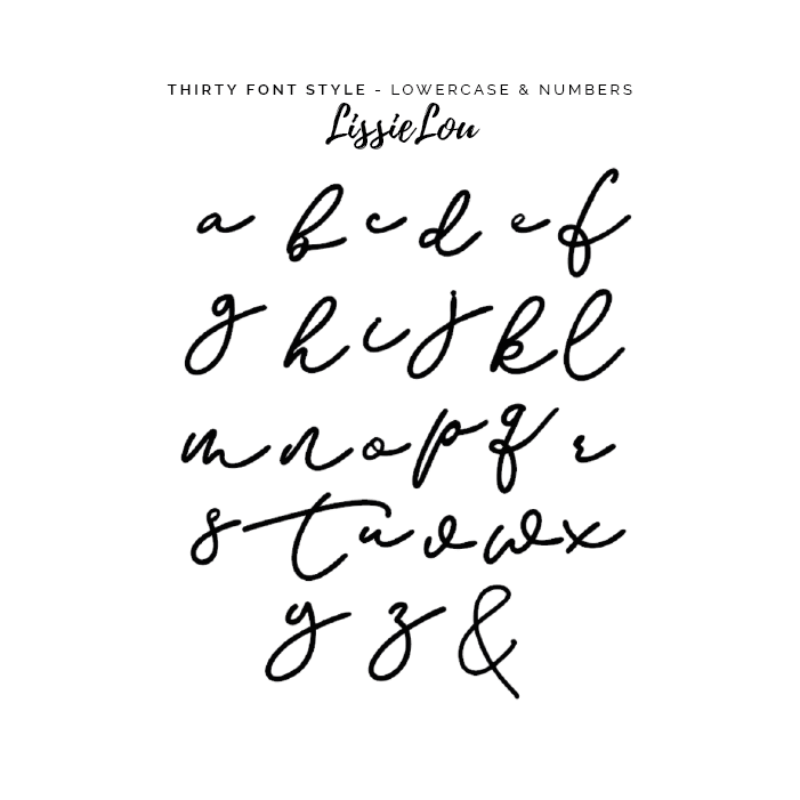 THIRTY FONT STYLE - LOWERCASE & NUMBERS
LissieLou
a b c d e f
g h i j k l
m n o p q r
s t u v w x
y z &